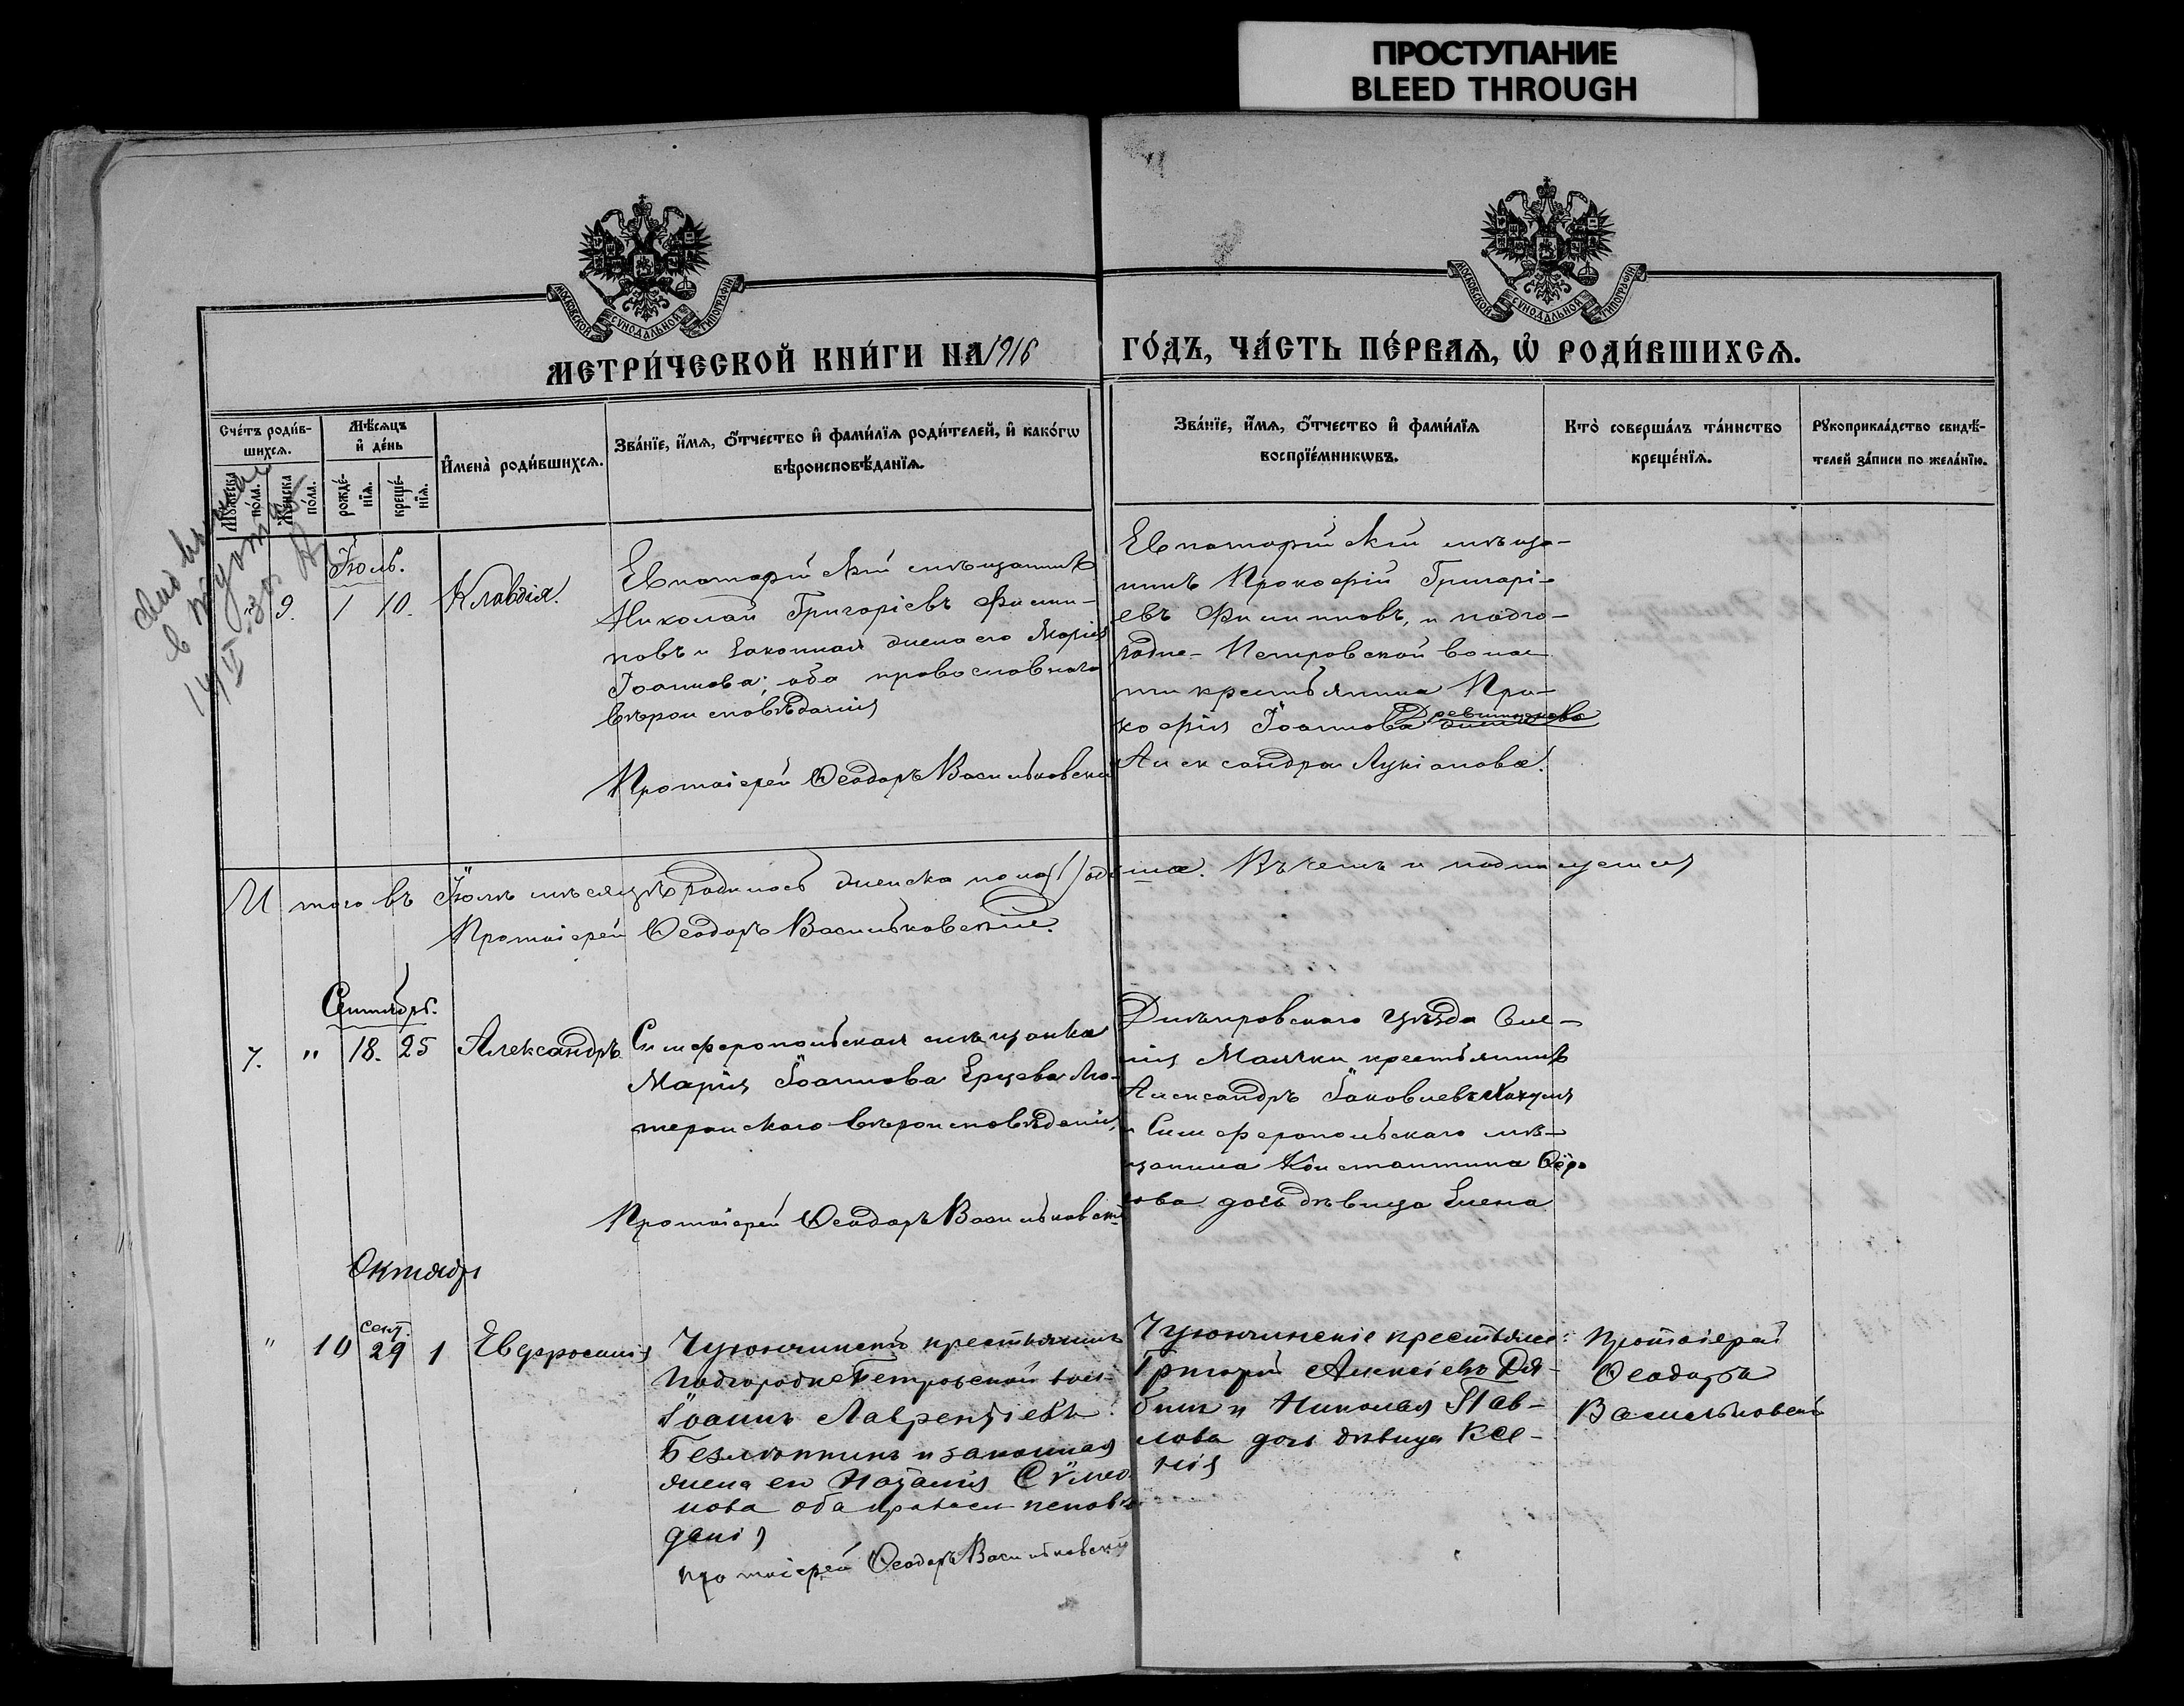 ПРОСТУПАНИЕ
BLEED THROUGH
МОСКОВСКОЙ СУНОДАЛЬНОЙ ТИПОГРАФІИ
МОСКОВСКОЙ СУНОДАЛЬНОЙ ТИПОГРАФІИ
МЕТРИ́ЧЕСКОЙ КНИ́ГИ НА 1916
ГО́ДЪ, ЧА́СТЬ ПЕ́РВАЯ, Ѡ РОДИ́ВШИХСЯ.
Сче́тъ роди́в-
шихся.
Мѣ́сяцъ
и де́нь
Мужеска
по́ла.
Женска
по́ла.
рожде́-
нїя.
креще́-
нїя.
Имена̀ роди́вшихся.
Зва́нїе, и́мя, ѻ́тчество и фами́лїя роди́телей, и како́гѡ
вѣроисповѣ́данїя.
Зва́нїе, и́мя, ѻ́тчество и фами́лїя
воспрїе́мникѡвъ.
Кто̀ соверша́лъ та́инство
креще́нїя.
Рукоприкла́дство свидѣ́-
телей за́писи по жела́нїю.
Іюль.
9. 1 10. Клавдія.
Евпаторійскій мѣщанинъ
Николай Григоріевъ Филип-
повъ и законная жена его Марія
Іоаннова; оба православнаго
вѣроисповѣданія
Протоіерей Ѳеодоръ Васильковскій
Евпаторійскій мѣща-
нинъ Прокофій Григорі-
евъ Филипповъ, и подго-
родне-Петровской волос
ти крестьянина Про-
кофія Іоаннова
Александра Лукіанова.
И того въ Іюлѣ мѣсяцѣ родилось женска пола (1) одна. Въ чемъ и подписуемся
Протоіерей Ѳеодоръ Васильковскій.
Сентябрь.
7. " 18. 25 Александръ
Симферопольская мѣщанка
Марія Іоаннова Ерцева Лю-
теранскаго вѣроисповѣданія,
Протоіерей Ѳеодоръ Васильковскій
Днѣпровскаго уѣзда Селе-
нія Маячки крестьянинъ
Александръ Іаковлевъ
и Симферопольскаго мѣ-
щанина Константина
дочь дѣвица Елена
Октябрь
сент.
" 10 29 1 Евфросинія
крестьянинъ
Подгородне Петровской вол.
Іоаннъ Лаврентіевъ
и законная
жена его Наталія Сѵмео
нова оба правосл исповѣ
данія
протоіерей Ѳеодоръ Васильковскій
крестьяне:
Григорій Алексіевъ Ря-
бин и Николая Пав-
лова дочь дѣвица Ксе-
нія
Протоіерей
Ѳеодоръ
Васильковскій